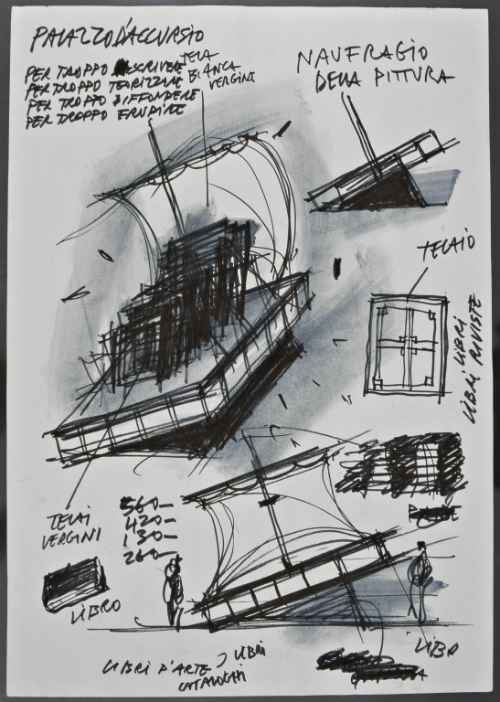 PALAZZO D'ACCURSIO
PER TROPPO SCRIVERE
PER TROPPO TEORIZZARE
PER TROPPO DIFFONDERE
PER TROPPO
TELA
BIANCA
VERGINE
NAUFRAGIO
DELLA PITTURA
TELAIO
LIBRI LIBRI
LIBRI RIVISTE
TELAI
VERGINI
560-
420-
130-
260-
LIBRO
LIBRO
LIBRI D'ARTE
CATALOGHI
LIBRI